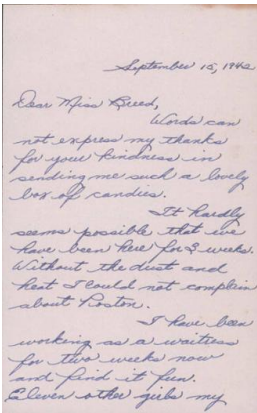 September 15, 1942
Dear Miss Breed,
Words can
not express my thanks
for your kindness in
sending me such a lovely
box of candies.
It hardly
seems possible that we
have been here for 3 weeks.
Without the dust and
heat I could not complain
about Poston.
I have been
working as a waitress
for two weeks now
and find it fun.
Eleven other girls my